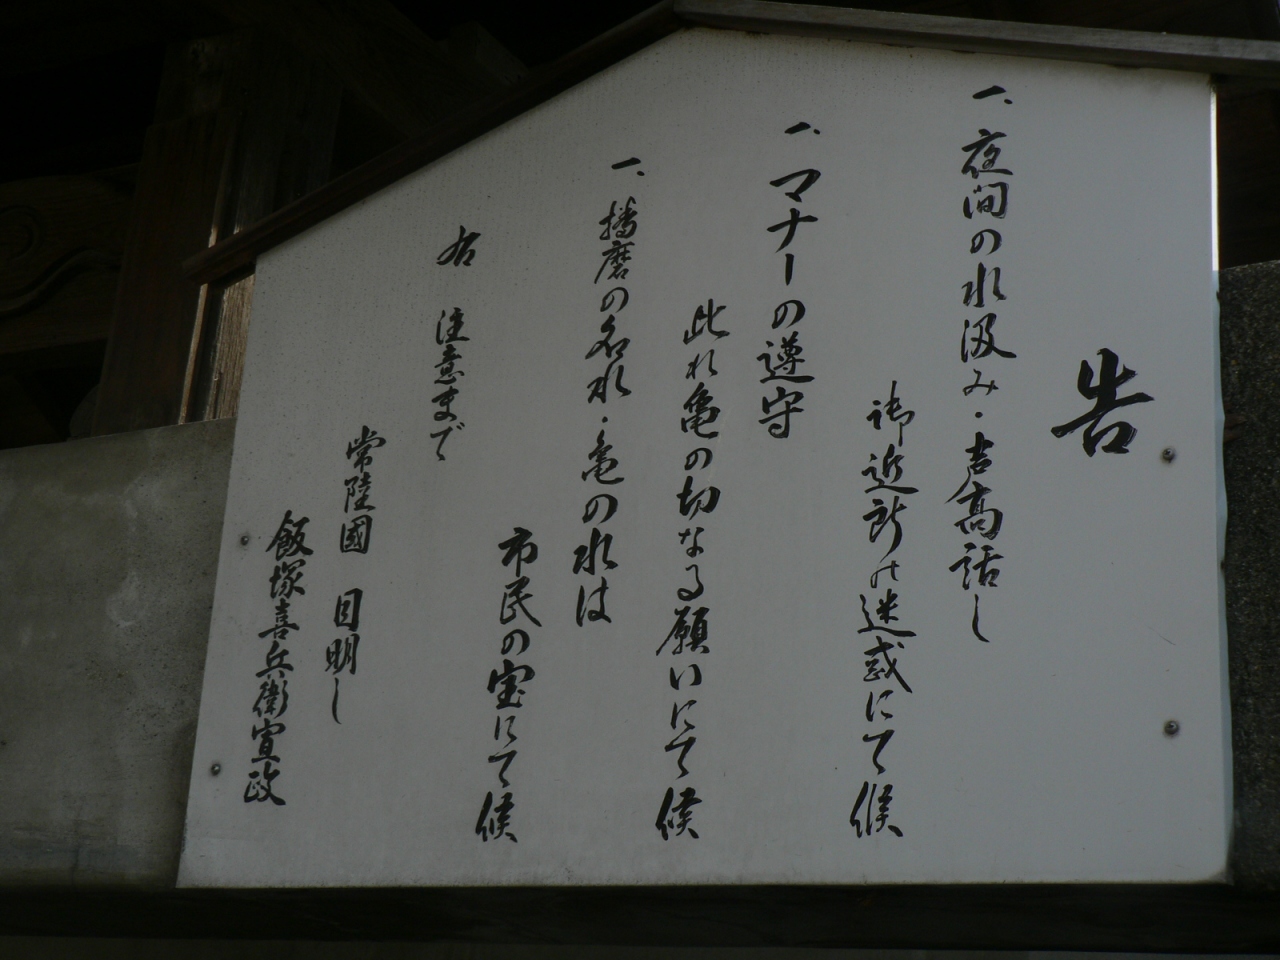 告
一、夜間の水汲み・声高話し
御近所の迷惑にて候
一、マナーの遵守
此れ亀の切なる願いにて候
一、播磨の名水・亀の水は
市民の宝にて候
右 注意まで
常陸國 目明し
飯塚喜兵衛宣政